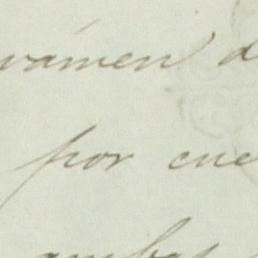 vámen d
por cue
ambas